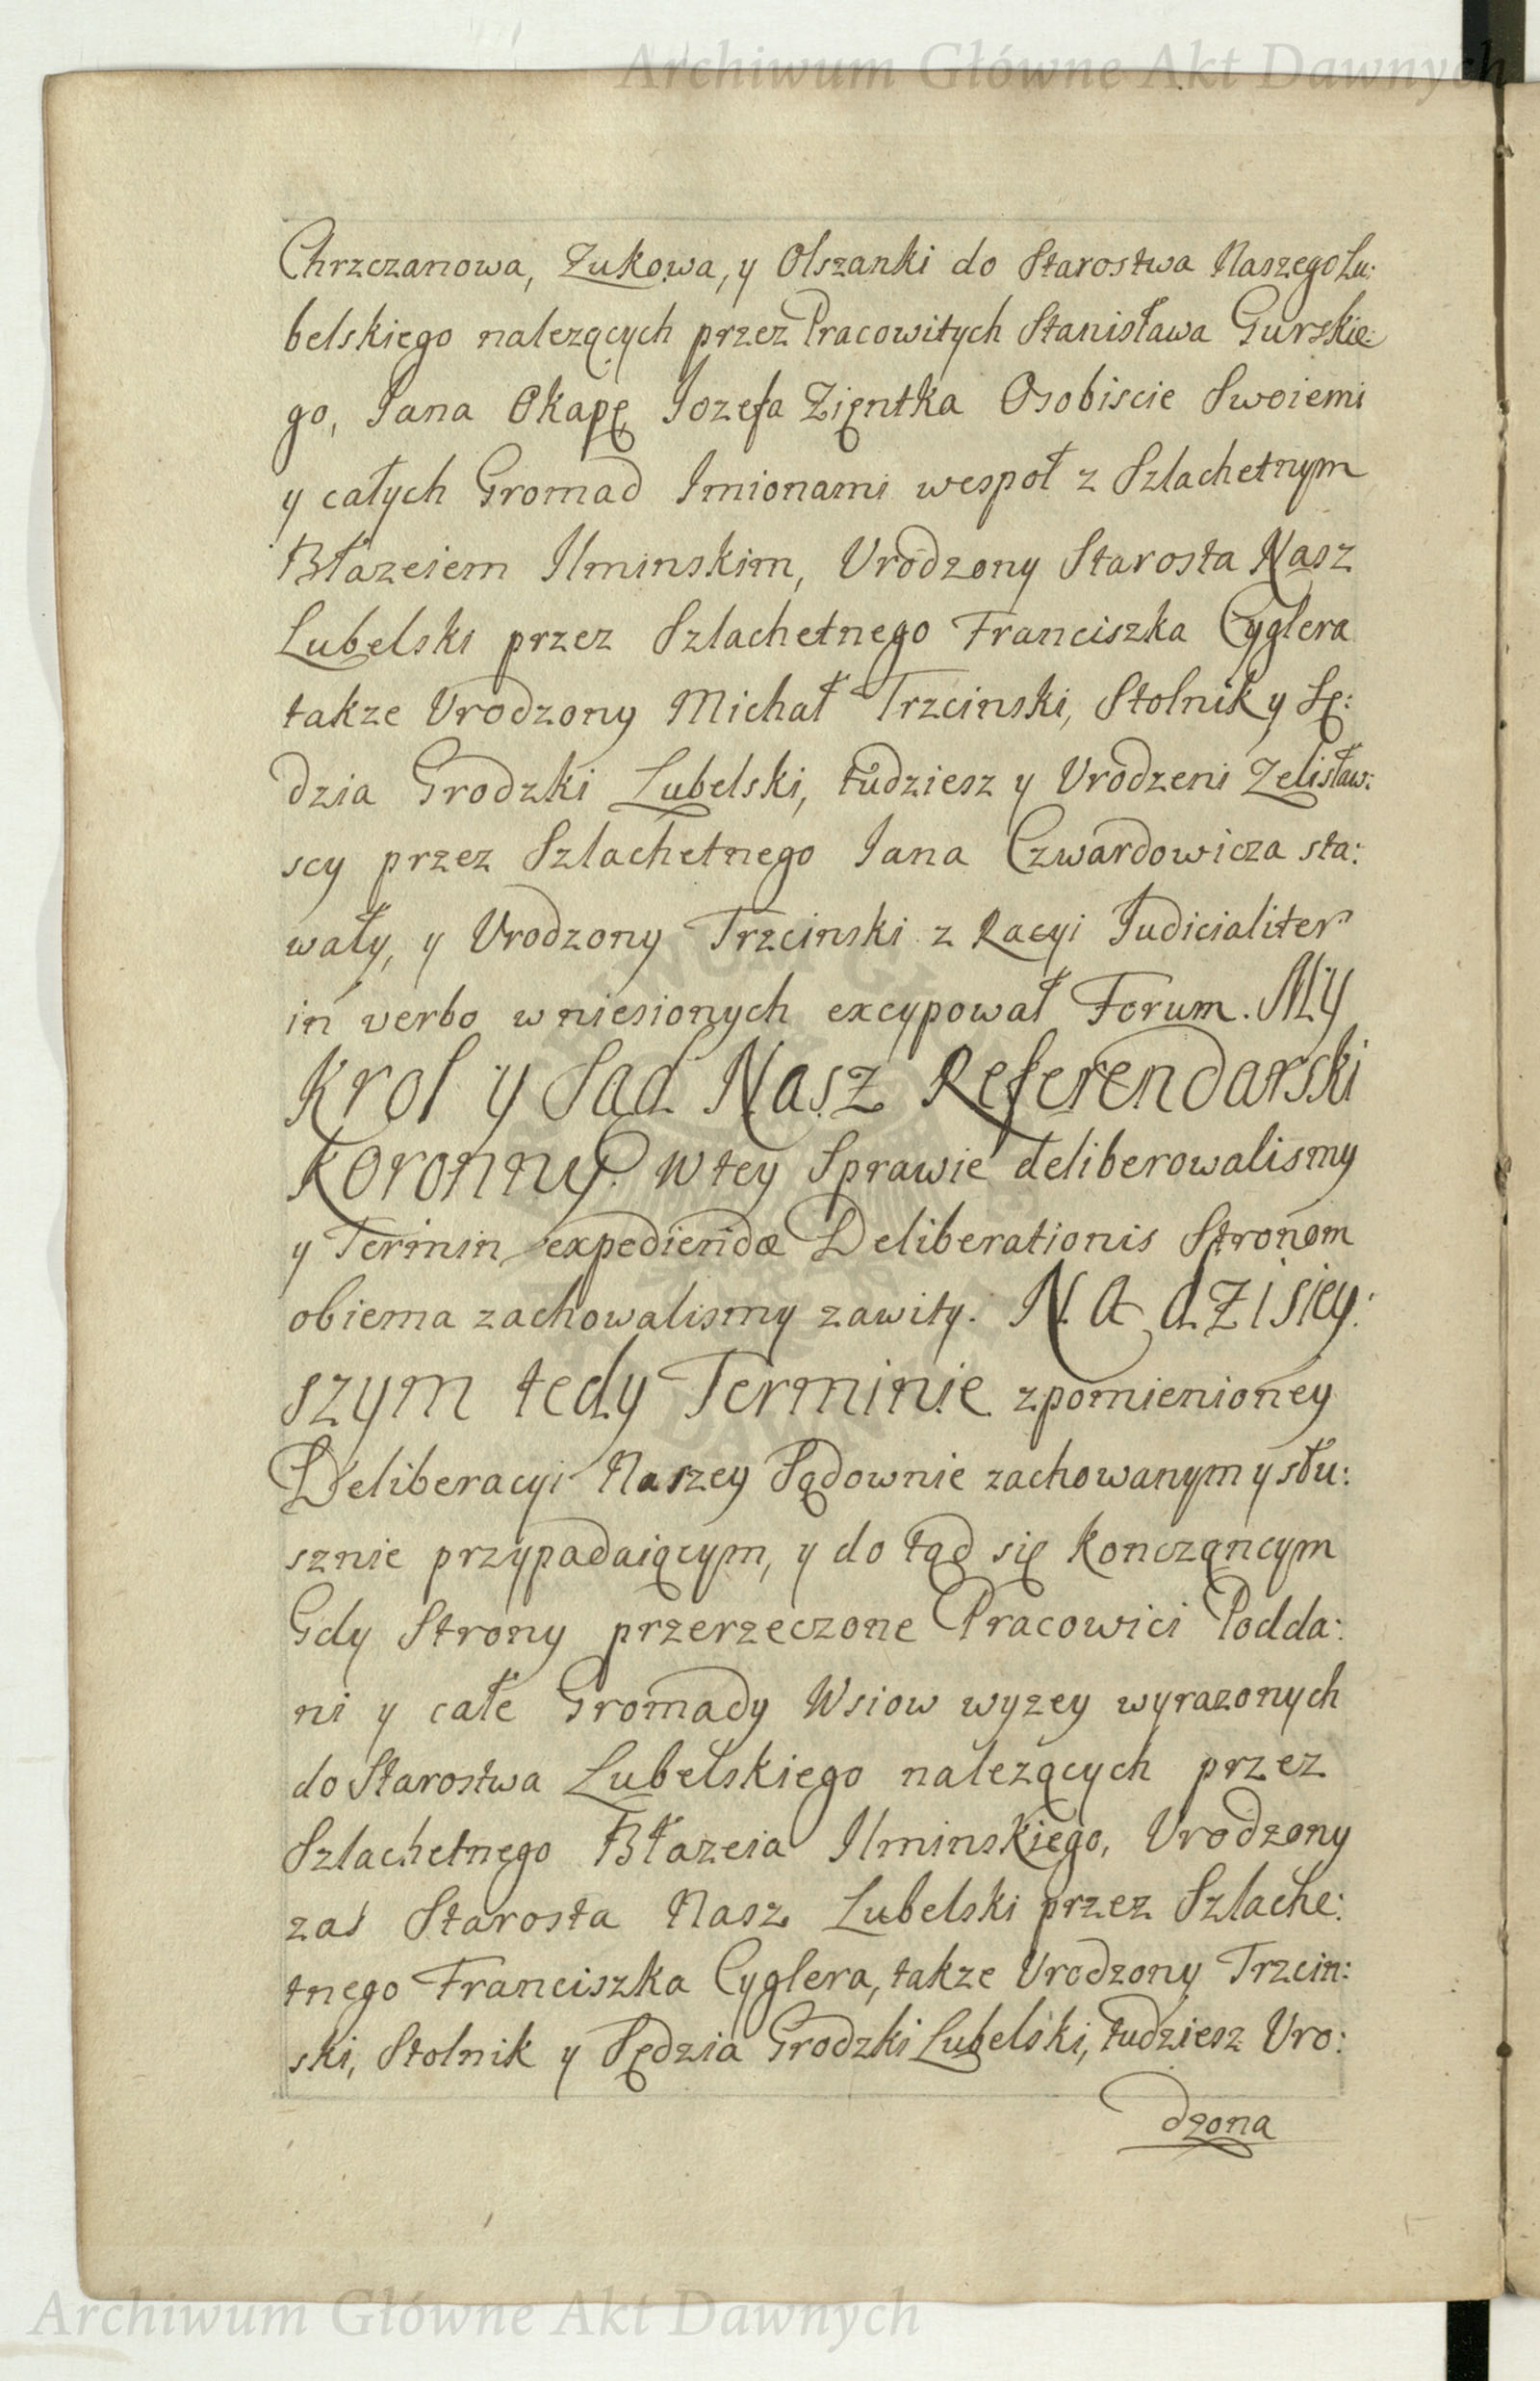 Archiwum Główne Akt Dawnych
Chrzczanowa, Zukowa, y Olszanki do Starostwa Naszego Lu:
belskiego nalezących przez Pracowitych Stanisława Gurskie:
go, Jana Okapę Jozefa Zięntka Osobiscie Swoiemi
y całych Gromad Jmionami wespoł z Szlachetnym
Błazeiem Jlminskim, Vrodzony Starosta Nasz
Lubelski przez Szlachetnego Franciszka Cyglera
takze Vrodzony Michał Trzcinski, Stolnik y Sę:
dzia Grodzki Lubelski, tudziesz y Vrodzeni Zelisław:
scy przez Szlachetnego Jana Czwardowicza sta:
wały, y Vrodzony Trzcinski z Racyi Judicialiter
in verbo wniesionych excypował Forum. MY
Krol y Sad Nasz Referendarski
Koronny. w tey Sprawie deliberowalismy
y Termin expediendæ Deliberationis Stronom
obiema zachowalismy zawity. NA dzisiey:
szym tedy Terminie z pomienioney
Deliberacyi Naszey Sądownie zachowanym y słu:
sznie przypadaiącym, y do tąd się konczącncym
Gdy Strony przerzeczone Pracowici Podda:
ni y całe Gromady Wsiow wyzey wyrazonych
do Starostwa Lubelskiego nalezących przez
Szlachetnego Błazeia Jlminskiego, Vrodzony
zas Starosta Nasz Lubelski przez Szlache:
tnego Franciszka Cyglera, takze Vrodzony Trzcin:
ski, Stolnik y Sędzia Grodzki Lubelski, tudziesz Vro:
dzona
Archiwum Główne Akt Dawnych